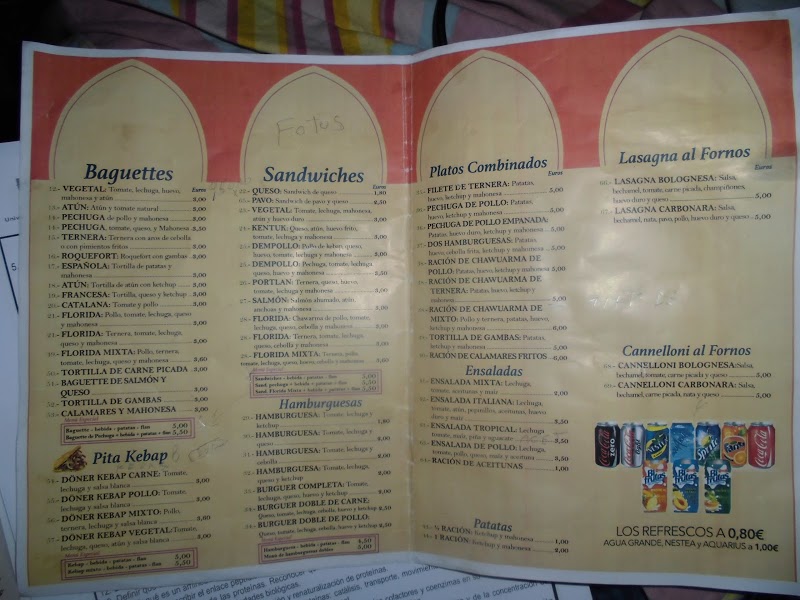 Baguettes
Euros
VEGETAL: Tomate, lechuga, huevo,
mahonesa y atún 3,00
ATÚN: Atún y tomate natural 3,00
PECHUGA de pollo y mahonesa 3,00
PECHUGA, tomate, queso, y Mahonesa 3,50
TERNERA: Ternera con aros de cebolla
o con pimentos fritos 3,00
ROQUEFORT: Roquefort con gambas 3,00
ESPAÑOLA: Tortilla de patatas y
mahonesa 3,00
ATÚN: Tortilla de atún con ketchup 3,00
FRANCESA: Tortilla, queso y ketchup 3,00
CATALANA: Tomate y pollo 3,00
FLORIDA: Pollo, tomate, lechuga, queso
y mahonesa 3,00
FLORIDA: Ternera, tomate, lechuga,
queso y mahonesa 3,00
FLORIDA MIXTA: Pollo, ternera,
tomate, lechuga, queso y mahonesa 3,60
TORTILLA DE CARNE PICADA 3,00
BAGUETTE DE SALMÓN Y
QUESO 3,00
TORTILLA DE GAMBAS 3,00
CALAMARES Y MAHONESA 3,00
Menú Especial
Baguette - bebida - patatas - flan 5,00
Baguette de Pechuga + bebida + patatas + flan 5,50
Pita Kebap
DÖNER KEBAP CARNE: Tomate,
lechuga y salsa blanca
DÖNER KEBAP POLLO: Tomate,
lechuga y salsa blanca
DÖNER KEBAP MIXTO: Pollo,
ternera, lechuga y salsa blanca 3,60
DÖNER KEBAP VEGETAL: Tomate,
lechuga, queso, atún y salsa blanca 3,00
Menú Especial
Kebap - bebida - patatas - flan 5,00
Kebap mixto - bebida - patatas - flan 5,50
Fotus
Sandwiches
Euros
QUESO: Sandwich de queso 1,80
PAVO: Sandwich de pavo y queso 2,50
VEGETAL: Tomate, lechuga, mahonesa,
atún y huevo duro 3,00
KENTUK: Queso, atún, huevo frito,
tomate, lechuga y mahonesa 3,00
DEMPOLLO: Pollo de kebap, queso,
huevo, tomate, lechuga y mahonesa 3,00
DEMPOLLO: Pechuga, tomate, lechuga,
queso, huevo y mahonesa 3,50
PORTLAN: Ternera, huevo, queso,
tomate, lechuga y mahonesa 3,00
SALMÓN: Salmón ahumado, atún,
anchoas y mahonesa 3,00
FLORIDA: Chawarma de pollo, tomate,
lechuga, queso, cebolla y mahonesa 3,00
FLORIDA: Ternera, tomate, lechuga,
queso, cebolla y mahonesa 3,00
FLORIDA MIXTA: Ternera, pollo,
tomate, lechuga, queso, cebolla y mahonesa 3,60
Menú Especial
Sandwiches - bebida - patatas - flan 5,00
Sand. pechuga + bebida + patatas + flan 5,50
Sand. Florida Mixta + bebida + patatas + flan 5,50
Hamburguesas
HAMBURGUESA: Tomate, lechuga y
ketchup 1,80
HAMBURGUESA: Tomate, lechuga,
queso y mahonesa
HAMBURGUESA: Tomate, lechuga y
cebolla
HAMBURGUESA: Tomate, lechuga,
queso y ketchup
BURGUER COMPLETA: Tomate,
lechuga, queso, huevo y ketchup
BURGUER DOBLE DE CARNE:
Queso, tomate, lechuga, cebolla, huevo y ketchup 3,50
BURGUER DOBLE DE POLLO:
Queso, tomate, lechuga, cebolla, huevo y ketchup 3,50
Menú Especial
Hamburguesa - bebida - patatas - flan
Menú de hamburguesas dobles
Platos Combinados
Euros
FILETE DE TERNERA: Patatas,
huevo, ketchup y mahonesa 5,00
PECHUGA DE POLLO: Patatas,
huevo, ketchup y mahonesa 5,00
PECHUGA DE POLLO EMPANADA:
Patatas, huevo duro, ketchup y mahonesa 5,00
DOS HAMBURGUESAS: Patatas,
huevo, cebolla frita, ketchup y mahonesa 5,00
RACIÓN DE CHAWUARMA DE
POLLO: Patatas, huevo, ketchup y mahonesa 5,00
RACIÓN DE CHAWUARMA DE
TERNERA: Patatas, huevo, ketchup y
mahonesa 5,00
RACIÓN DE CHAWUARMA DE
MIXTO: Pollo y ternera, patatas, huevo,
ketchup y mahonesa 6,00
TORTILLA DE GAMBAS: Patatas,
ketchup y mahonesa 5,00
RACIÓN DE CALAMARES FRITOS 6,00
Ensaladas
ENSALADA MIXTA: Lechuga,
tomate, aceitunas y maíz 2,00
ENSALADA ITALIANA: Lechuga,
tomate, atún, pepinillo, aceitunas, huevo
duro y maíz 3,50
ENSALADA TROPICAL: Lechuga,
tomate, maíz, piña y aguacate
ENSALADA DE POLLO: Lechuga,
tomate, pollo, queso, maíz y aceitunas 3,50
RACIÓN DE ACEITUNAS 1,00
Patatas
½ RACIÓN: Ketchup y mahonesa 1,00
1 RACIÓN: Ketchup y mahonesa 2,00
Lasagna al Fornos
Euros
LASAGNA BOLOGNESA: Salsa,
bechamel, tomate, carne picada, champiñones,
huevo duro y queso 5,00
LASAGNA CARBONARA: Salsa,
bechamel, nata, pavo, pollo, huevo duro y queso 5,00
Cannelloni al Fornos
68.- CANNELLONI BOLOGNESA: Salsa,
bechamel, tomate, carne picada y queso 5,00
69.- CANNELLONI CARBONARA: Salsa,
bechamel, carne picada, nata y queso 5,00
Coca-Cola
zero
Sprite
Fanta
Coca-Cola
LOS REFRESCOS A 0,80€
AGUA GRANDE, NESTEA y AQUARIUS a 1,00€